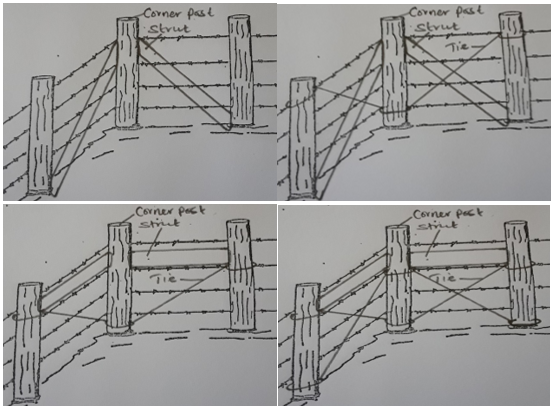 Corner post
Strut
Corner post
Strut
Tie
Corner post
Strut
Tie
Corner post
Strut
Tie